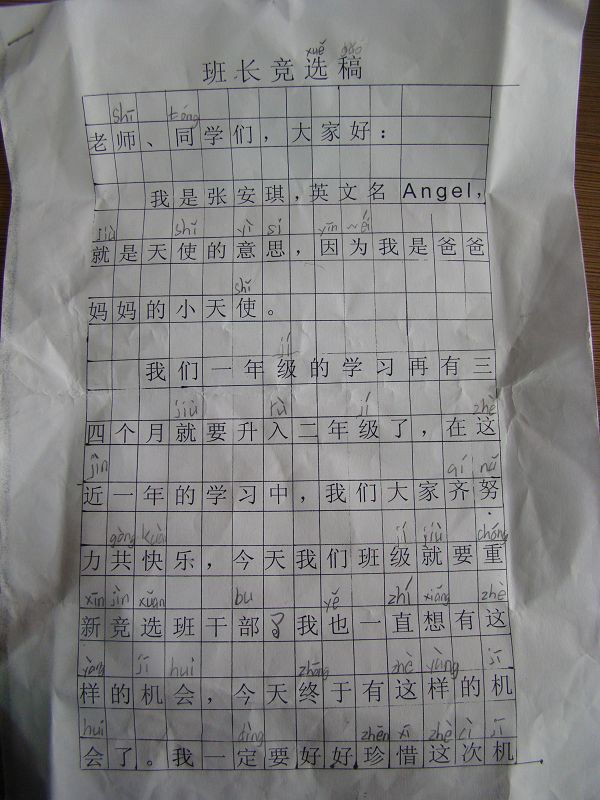 xuě gǎo
班长竞选稿
shī tóng
老师、同学们，大家好：
我是张安琪，英文名Angel，
jiù shǐ yì si yīn
就是天使的意思，因为我是爸爸
shǐ
妈妈的小天使。
jí
我们一年级的学习再有三
jiù rù jí zhè
四个月就要升入二年级了，在这
jìn qí nǔ
近一年的学习中，我们大家齐努
gòng kuài jí jiù chóng
力共快乐，今天我们班级就要重
xīn jìn xuǎn bu yě zhí xiǎng zhè
新竞选班干部了我也一直想有这
yàng jī huì zhōng zhè yàng jī
样的机会，今天终于有这样的机
huì dìng zhēn xī zhè cì jī
会了。我一定要好好珍惜这次机